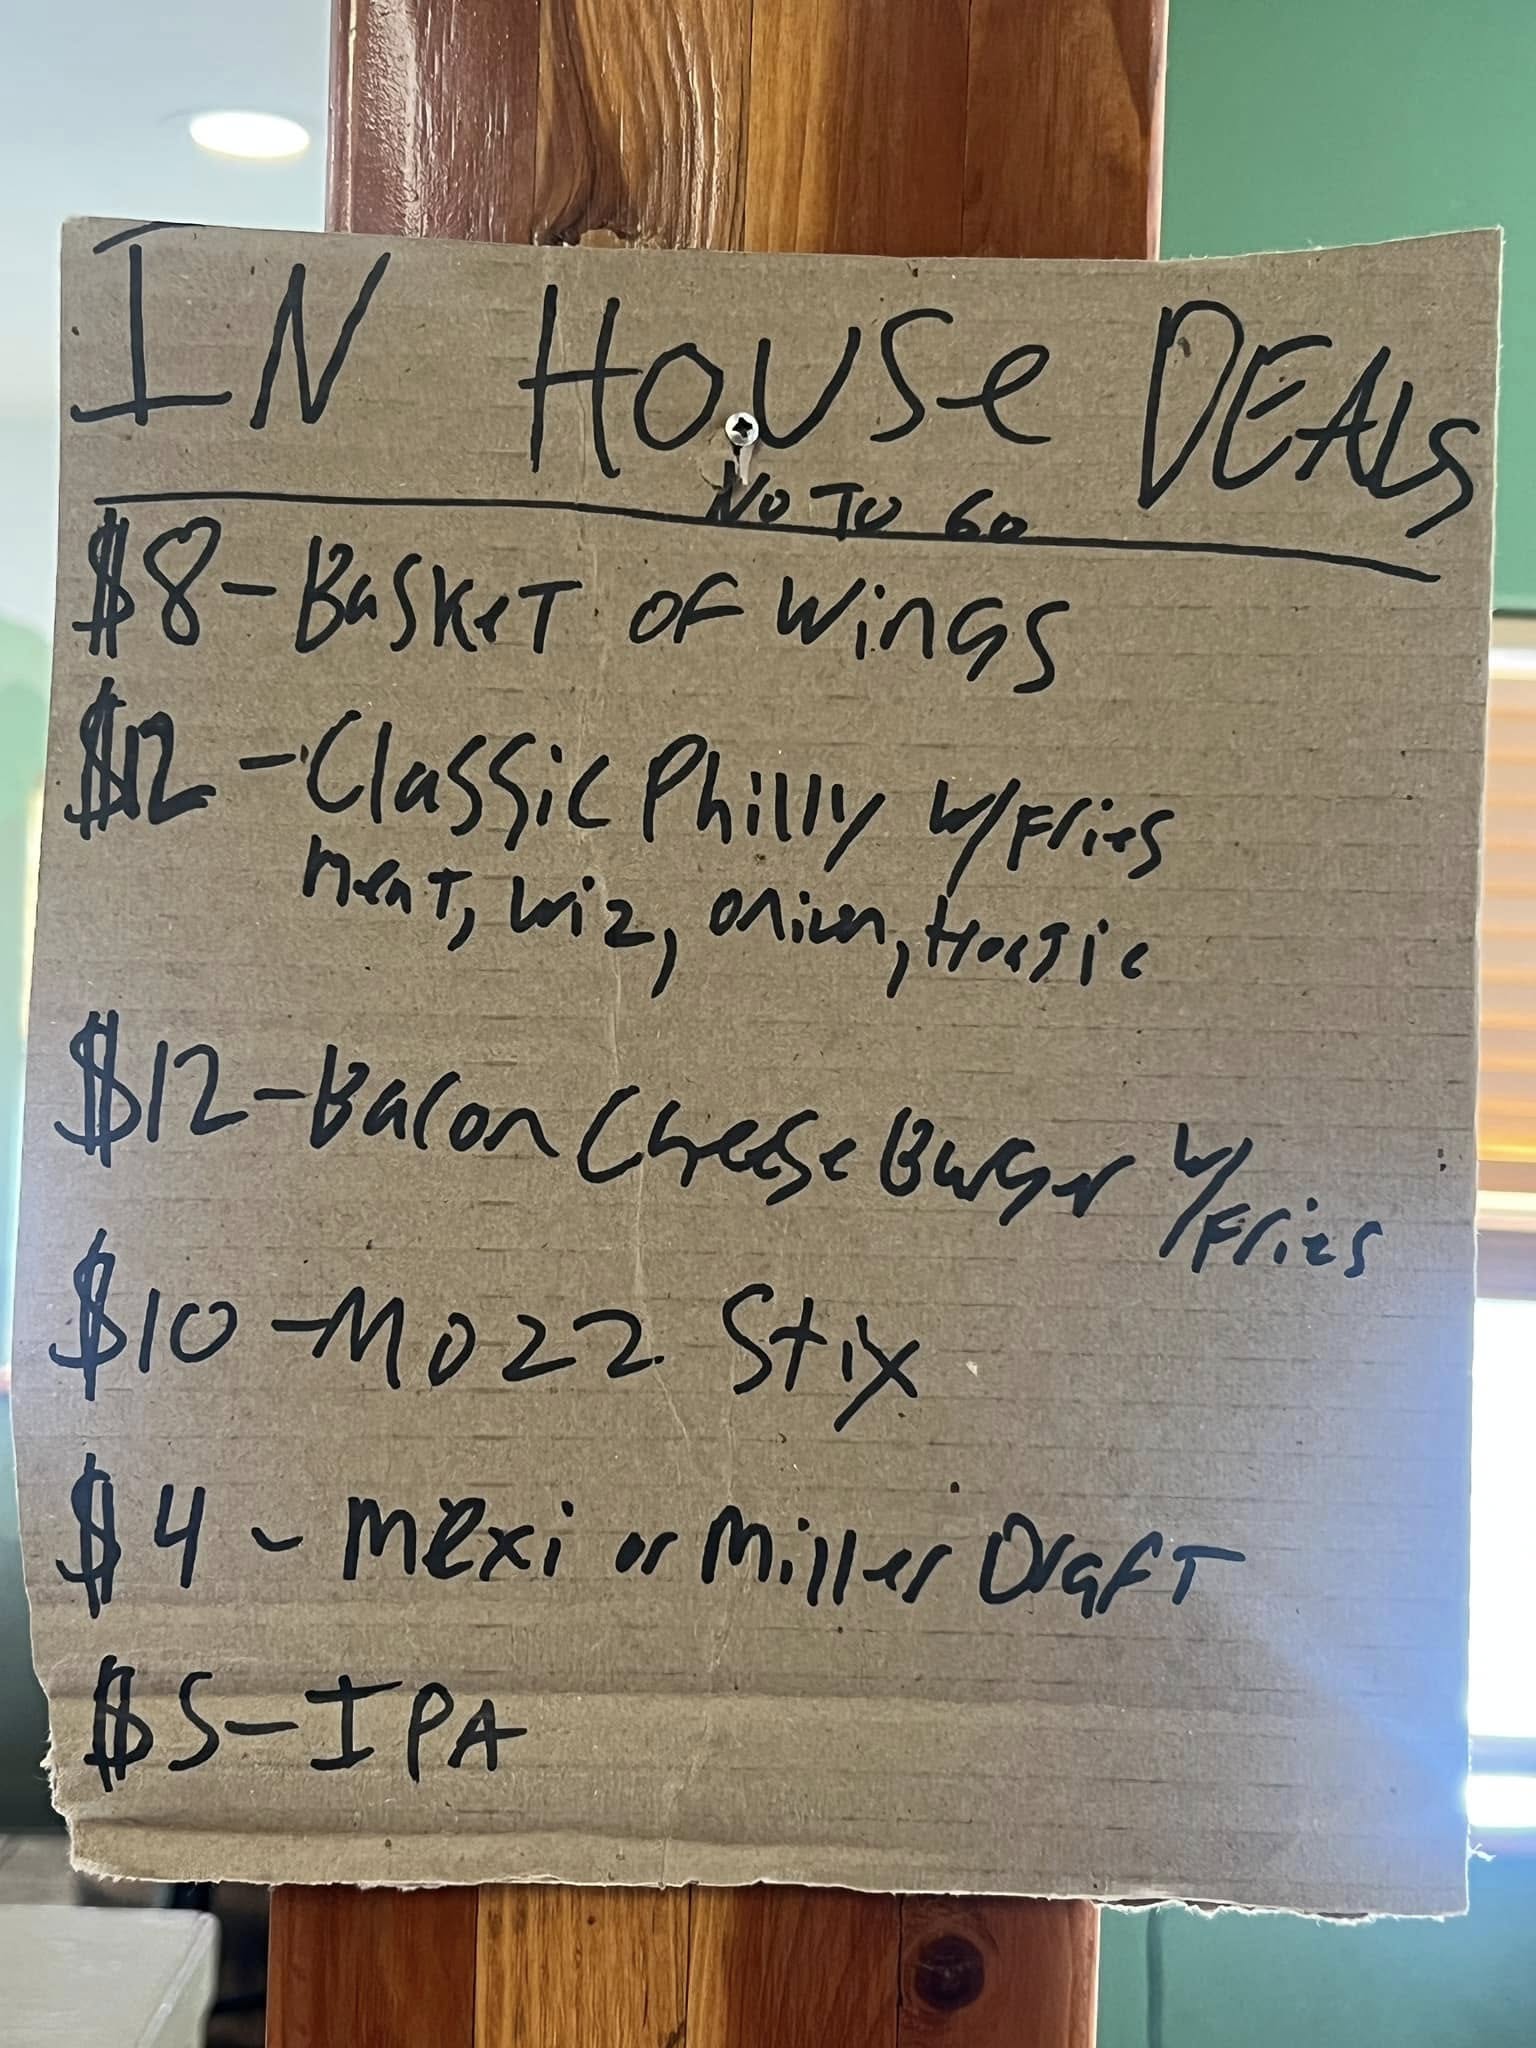 IN HOUSe DEALS
NO TO GO
$8-BaSKeT OF WinGS
$12-Classic Philly w/Fries
Meat, wiz, onion, Hoagie
$12-Bacon CheeSe BurGer w/Fries
$10-Mozz Stix
$4-Mexi or Miller DrafT
$5-IPA